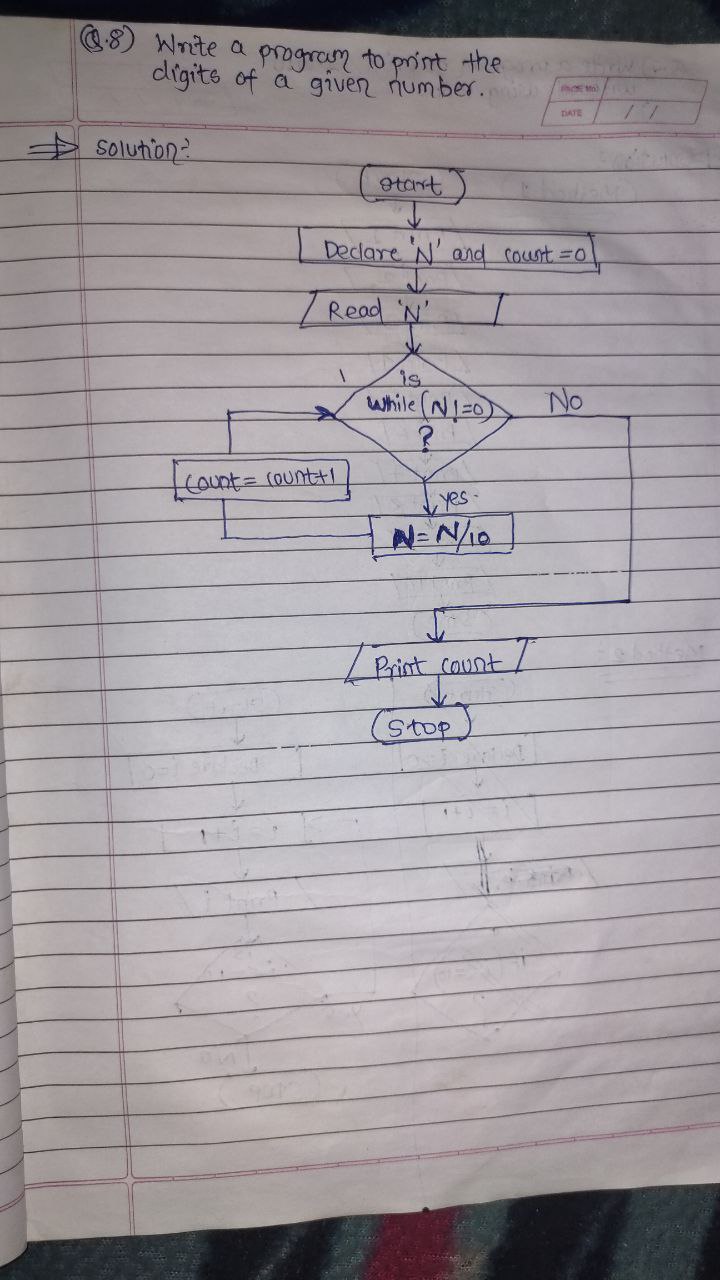 Q.8) Write a program to print the
digits of a given number.
PAGE No.
DATE / /
⇒ Solution:
Start
Declare 'N' and count = 0
Read 'N'
is
While (N!=0)
?
No
Count = count+1
yes.
N = N/10
Print count
Stop